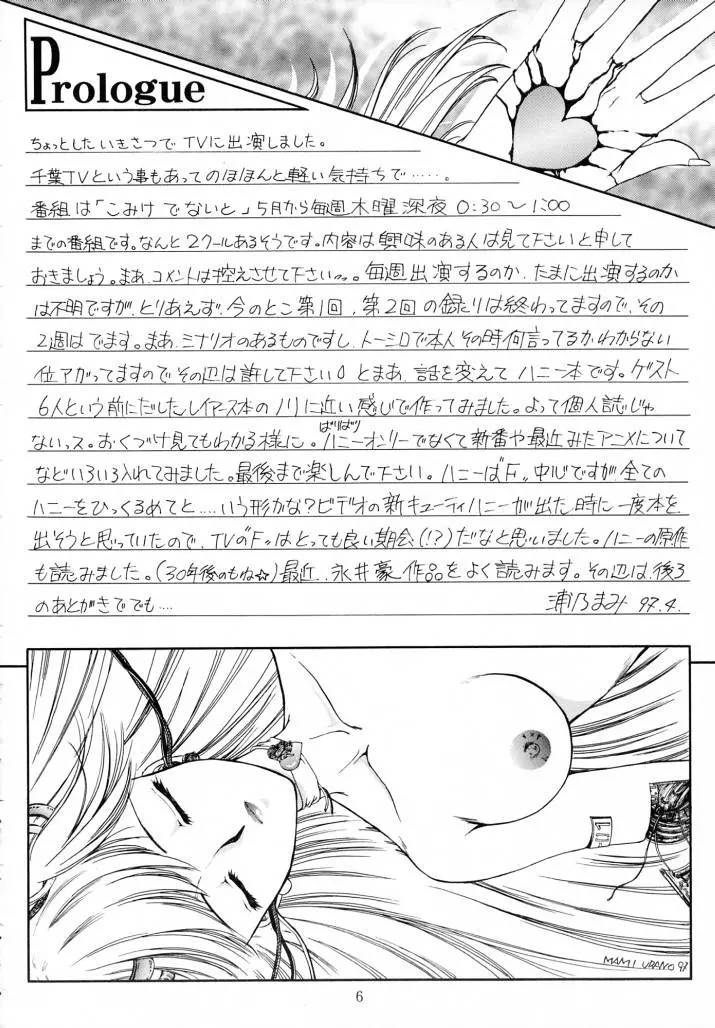 Prologue
ちょっとした いきさつで TVに出演しました。
千葉TVという事もあって のほほんと軽い気持ちで……。
番組は「こみけ でないと」5月から毎週木曜深夜 0:30〜1:00
までの番組です。なんと2クールあるそうです。内容は興味のある人は見て下さいと申して
おきましょう。まあ、コメントは控えさせて下さい。毎週出演するのか、たまに出演するのか
は不明ですが、とりあえず、今のとこ第1回、第2回の録りは終わってますので、その
2週はでます。まあ、ミナリオのあるものですし、トーシロで本人その時何言ってるか、わからない
位アガってますので その辺は許して下さい。とまあ、話を変えて ハニー本です。ゲスト
6人という前にだしたレイアース本のノリに近い感じで作ってみました。よって個人誌じゃ
ないっス。おくづけ見てもわかる様に。ばりばりハニーオンリーでなくて新番や最近みたアニメについて
などいろいろ入れてみました。最後まで楽しんで下さい。ハニーは"F"中心ですが全ての
ハニーをひっくるめてと……いう形かな?ビデオの新キューティハニーが出た時に一度本を
出そうと思っていたので、TVの"F"はとっても良い期会(!?)だなと思いました。ハニーの原作
も読みました。(30年後のもね☆)最近、永井豪作品をよく読みます。その辺は、後ろ
のあとがきででも…
浦乃まみ 97.4.
MAMI URANO 97
6